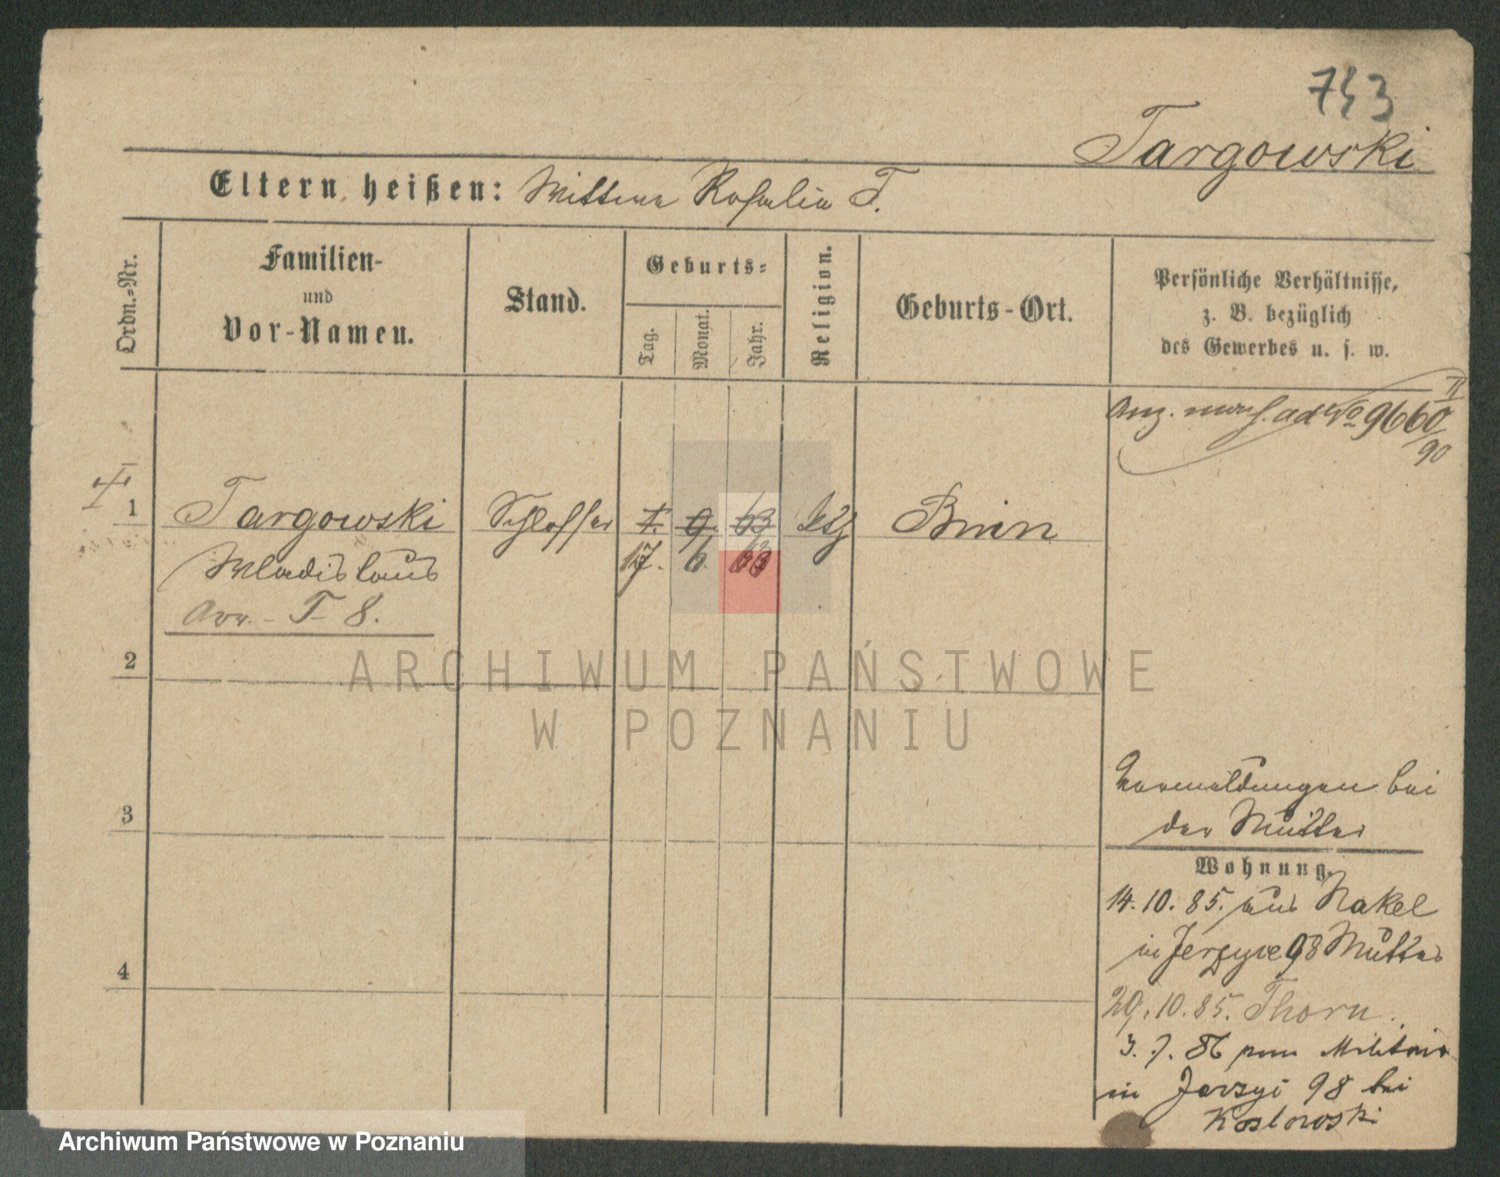 743
Targowski
Eltern heißen: Wittwe Rosalia T.
Ordn.-Nr.
Familien-
und
Vor-Namen.
Stand.
Geburts-
Tag.
Monat.
Jahr.
Religion.
Geburts-Ort.
Persönliche Verhältnisse,
z. B. bezüglich
des Gewerbes u. s. w.
ad No 9660/90
II
1 Targowski Schlosser 1. 9. 63 Bnin
Wladislaus 17. 6. 63
T 8.
2
3
4
Anmeldungen bei
der Mutter
Wohnung.
14. 10. 85. aus Nakel
in Jerzyce 98 Mutter
29. 10. 85. Thorn.
3. 7. 86 vom Militair
in Jerzyc 98 bei
Koslowski
ARCHIWUM PAŃSTWOWE
W POZNANIU
Archiwum Państwowe w Poznaniu